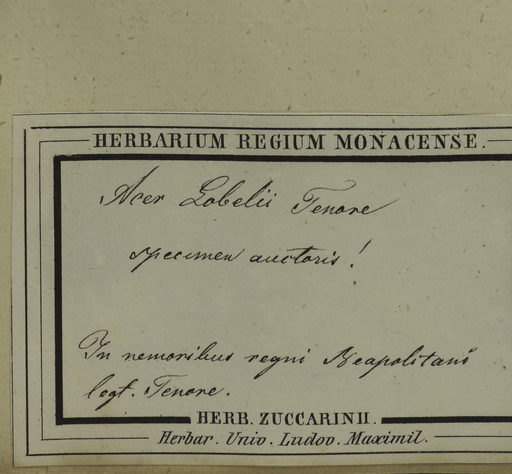 HERBARIUM REGIUM MONACENSE.
Acer Lobelii Tenore
specimen auctoris!
In nemoribus regni Neapolitani
legt. Tenore.
HERB. ZUCCARINII.
Herbar. Univ. Ludov. Maximil.